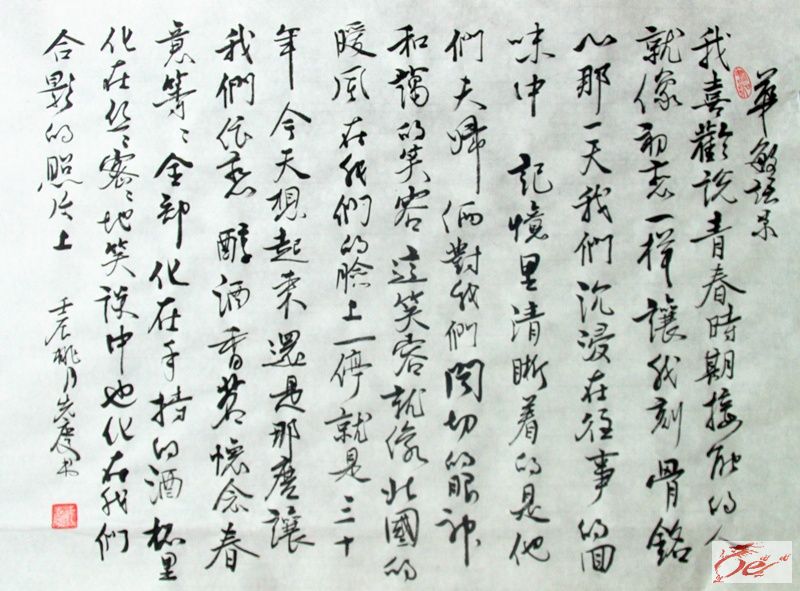 華敏語录
我喜歡說青春時期接触的人
就像初恋一様讓我刻骨銘
心那一天我們沉浸在往事的回
味中 記憶里清晰着的是他
們夫婦倆對我們関切的眼神
和藹的笑容這笑容就像北國的
暖風在我們的臉上一停就是三十
年 今天想起来還是那麼讓
我們依恋 醇酒香茗懷念春
意等等全部化在手持的酒杯里
化在丝丝密密地笑談中也化在我們
合影的照片上
壬辰桃月先慶书